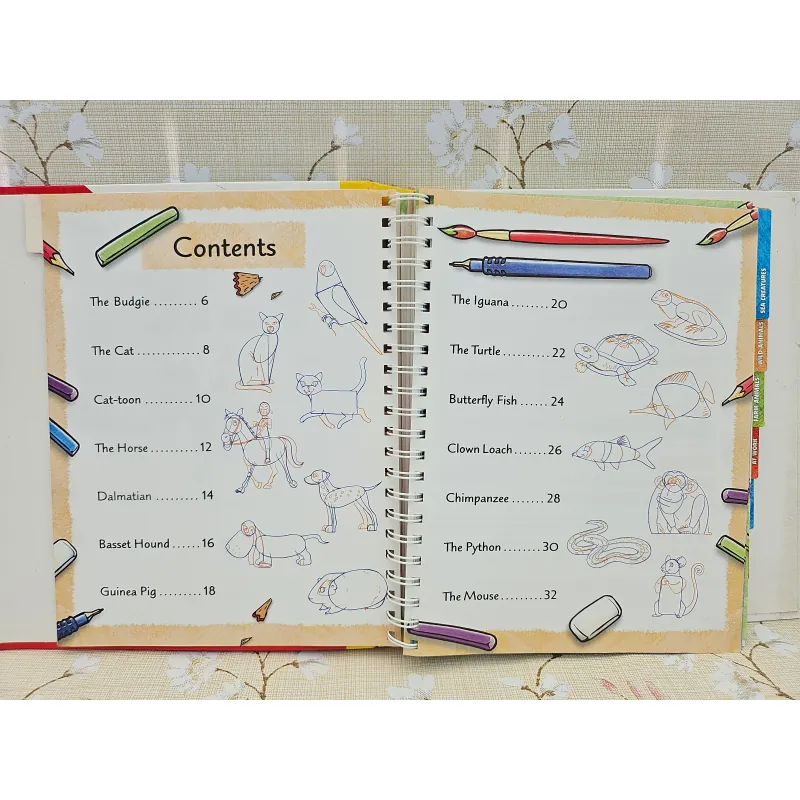 Contents
The Budgie ......... 6
The Cat ............ 8
Cat-toon .......... 10
The Horse .......... 12
Dalmatian ......... 14
Basset Hound ...... 16
Guinea Pig ......... 18
The Iguana ........ 20
The Turtle ......... 22
Butterfly Fish ...... 24
Clown Loach ...... 26
Chimpanzee ....... 28
The Python ........ 30
The Mouse ......... 32
SEA CREATURES
WILD ANIMALS
FARM ANIMALS
AT WORK